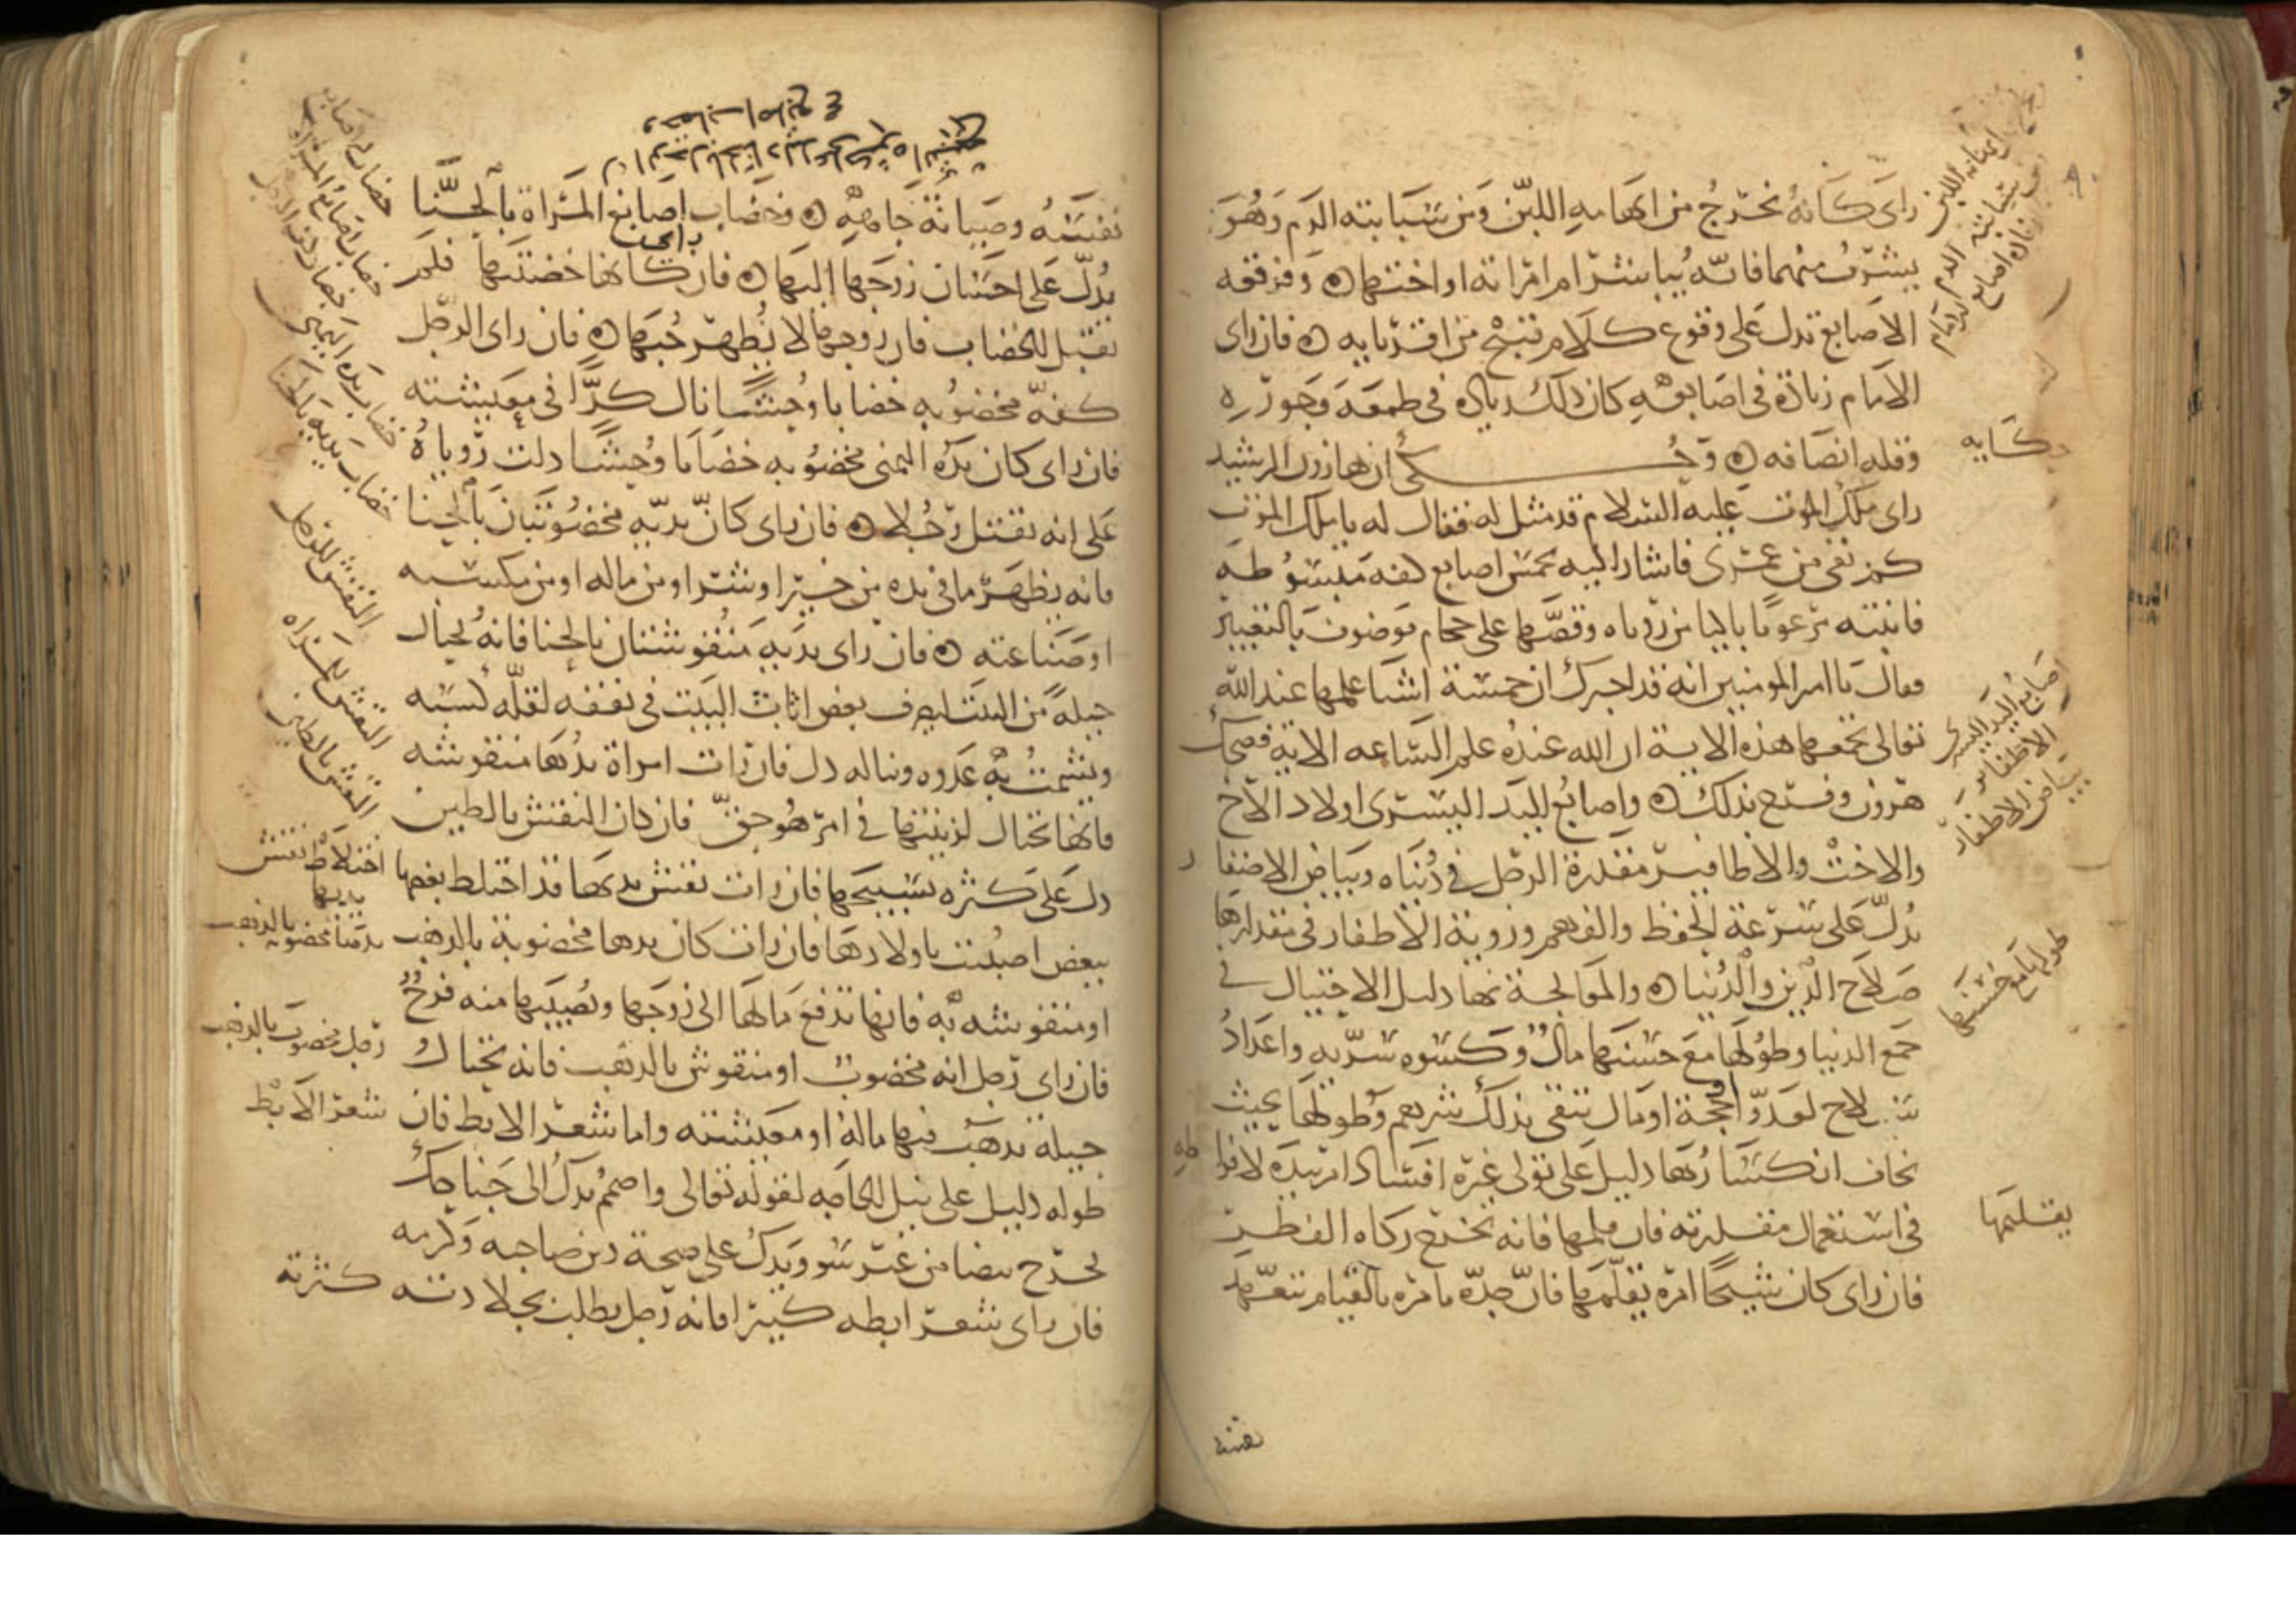 راى كانه يخرج من ابهامه اللبن ومن سبابته الدم وهو
يشرب منهما فانه يباشر ام امراته او اختها ۞ وفرقعه
الاصابع تدل على وقوع كلام قبيح من اقربايه ۞ فان راى
الامام زيادة في اصابعه كان ذلك زيادة في طمعه وجوره
وقله انصافه ۞ وحكى ان هارون الرشيد
راى ملك الموت عليه السلام قد مثل له فقال له يا ملك الموت
كم بقى من عمرى فاشار اليه بخمس اصابع كفه مبسوطه
فانتبه مرعوبا باكيا من روياه وقصها على حجام موصوف بالتعبير
فقال يا امير المومنين انه قد اخبرك ان خمسة اشيا علمها عند الله
تعالى تجمعها هذه الاية ان الله عنده علم الساعه الاية فضحك
هرون وفرح بذلك ۞ واصابع اليد اليسرى اولاد الاخ
والاخت والاظافير مقدرة الرجل في دنياه وبياض الاضفا ر
يدل على سرعة الحفظ والفهم وروية الاظفار في مقدارها
صلاح الدين والدنيا ۞ والمعالجة بها دليل الاحتيال في
جمع الدنيا وطولها مع حسنها مال وكسوه سريه واعداد
سلاح لعدو او حجة او مال يتقى بذلك شرهم وطولها بحيث
يخاف انكسارها دليل على تولى غيره افساد امر بيده لافرا طه
في استعمال مقدرته فان قلمها فانه يخرج زكاه الفطر
فان راى كان شيخا امره بقلمها فان جده يامره بالقيام بتعهد
حكايه
اصابع اليد اليسرى
الاظفار
بياض الاظفار
طولها مع حسنها
يقلمها
نفسه
نفسه وصيانة جاهه ۞ وخضاب اصابع المراة بالحنا
يدل على احسان زوجها اليها ۞ فان رات كانها خضبتها فلم
تقبل الخضاب فان زوجها لا يظهر حبها ۞ فان راى الرجل
كفه مخضوبه خضابا وحشا نال كدا في معيشته
فان راى كان يده اليمنى مخضوبه خضابا وحشا دلت روياه
على انه يقتل رجلا ۞ فان راى كان يديه مخضوبتان بالحنا
فانه يظهر ما في يده من خير او شر او من ماله او من مكسبه
او صناعته ۞ فان راى يديه منقوشتان بالحنا فانه يحتال
حيلة من البيت ليصرف بعض اثاث البيت في نفقه لقله كسبه
ويشمت به عدوه ويناله ذل فان رات امراة يدها منقوشه
فانها تحتال لزينتها في امر هو حق فان كان النقش بالطين
دل على كثره تسبيحها فان رات نقش يديها قد اختلط بعضها
ببعض اصيبت باولادها فان رات كان يدها مخضوبة بالذهب
او منقوشه به فانها تدفع مالها الى زوجها ويصيبها منه فرح
فان راى رجل انه مخضوب او منقوش بالذهب فانه يحتال
حيلة يذهب فيها ماله او معيشته واما شعر الابط فان
طوله دليل على نيل الحاجه لقوله تعالى واضمم يدك الى جناحك
تخرج بيضا من غير سو ويدل على صحة دين صاحبه وكرمه
فان راى شعر ابطه كثيرا فانه رجل يطلب بجلادته كثرته
خضاب اصابع المراه
خضاب يده اليمنى
خضاب يديه بالحنا
النقش للرجل
النقش للمراه
النقش بالطين
اختلاط نقش
يديها
يدها مخضوبه بالذهب
رجل مخضوب بالذهب
شعر الابط